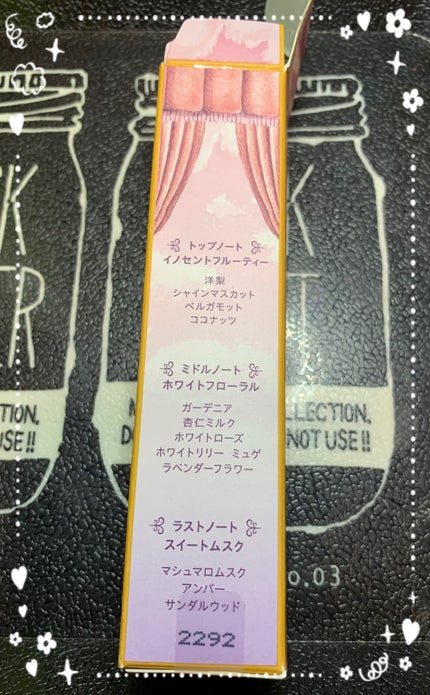 トップノート
イノセントフルーティー
洋梨
シャインマスカット
ベルガモット
ココナッツ
ミドルノート
ホワイトフローラル
ガーデニア
杏仁ミルク
ホワイトローズ
ホワイトリリー ミュゲ
ラベンダーフラワー
ラストノート
スイートムスク
マシュマロムスク
アンバー
サンダルウッド
2292
TION,
USE!!
LLECTION,
NOT USE!!
o.03